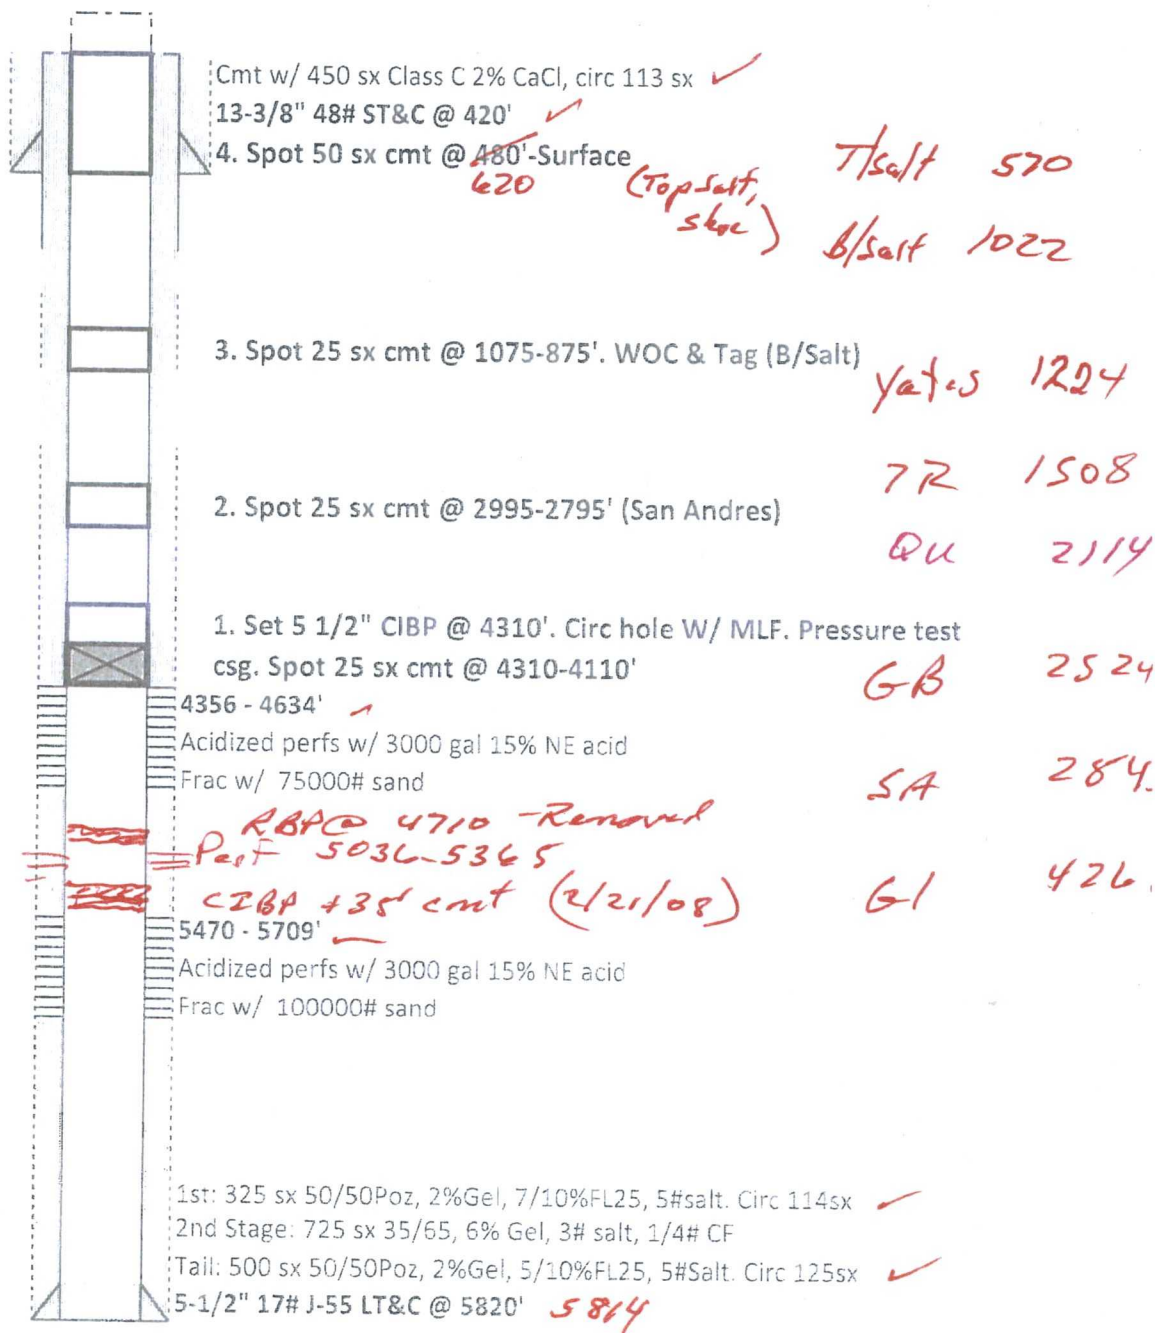 Cmt w/ 450 sx Class C 2% CaCl, circ 113 sx
13-3/8" 48# ST&C @ 420'
4. Spot 50 sx cmt @ 480'-Surface
620
(Top Salt,
shoe)
T/Salt 570
B/Salt 1022
3. Spot 25 sx cmt @ 1075-875'. WOC & Tag (B/Salt)
Yates 1224
7R 1508
2. Spot 25 sx cmt @ 2995-2795' (San Andres)
QU 2114
1. Set 5 1/2" CIBP @ 4310'. Circ hole W/ MLF. Pressure test
csg. Spot 25 sx cmt @ 4310-4110'
GB 2524
4356 - 4634'
Acidized perfs w/ 3000 gal 15% NE acid
Frac w/ 75000# sand
SA 284.
RBP@ 4710 -Removed
Perf 5036-5365
CIBP +35' cmt (2/21/08)
Gl 426.
5470 - 5709'
Acidized perfs w/ 3000 gal 15% NE acid
Frac w/ 100000# sand
1st: 325 sx 50/50Poz, 2%Gel, 7/10%FL25, 5#salt. Circ 114sx
2nd Stage: 725 sx 35/65, 6% Gel, 3# salt, 1/4# CF
Tail: 500 sx 50/50Poz, 2%Gel, 5/10%FL25, 5#Salt. Circ 125sx
5-1/2" 17# J-55 LT&C @ 5820' 5814